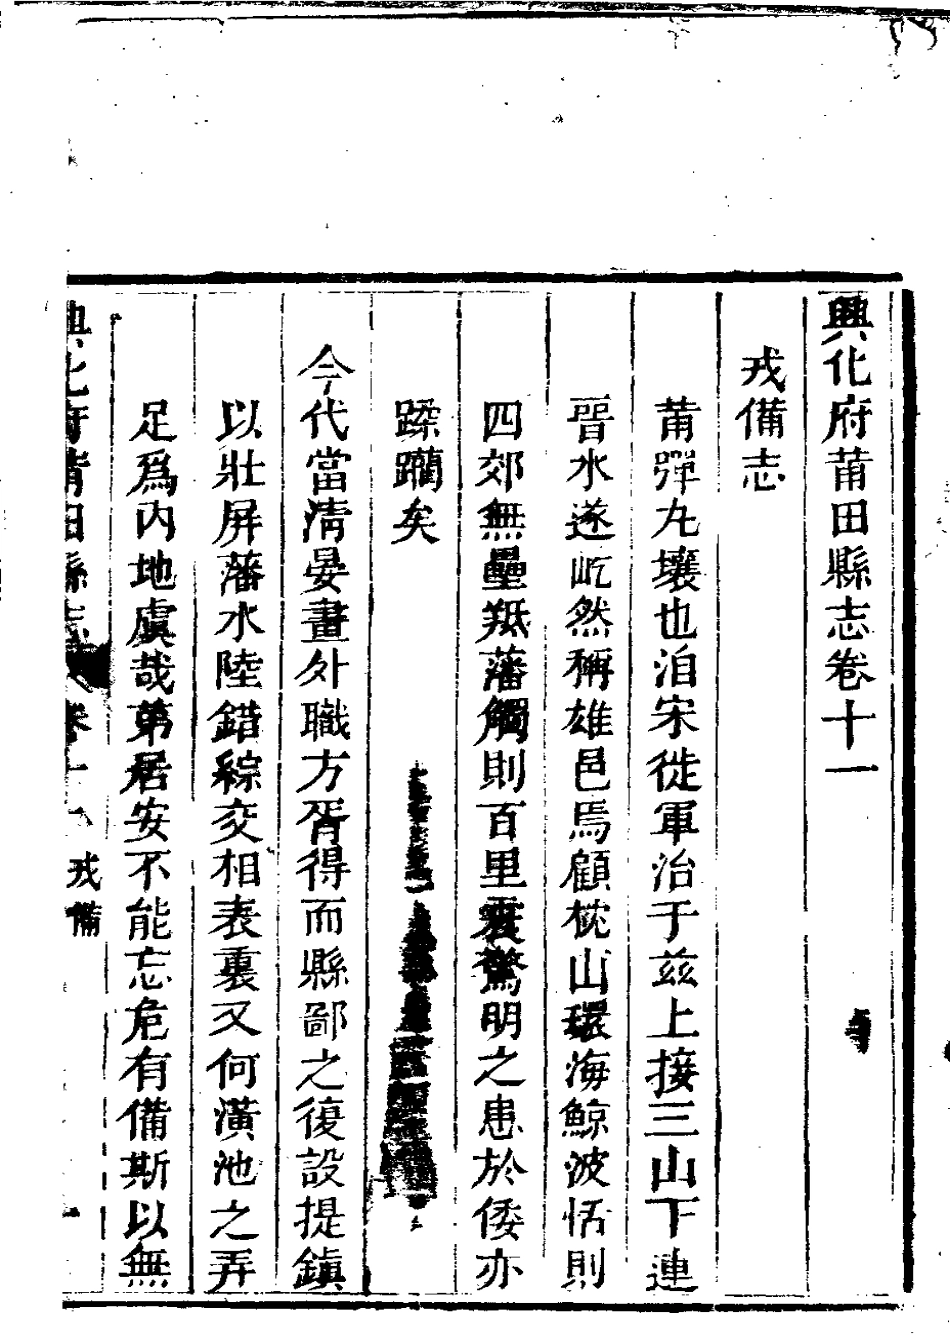 興化府莆田縣志卷十一
戎備志
莆彈丸壤也洎宋徙軍治于兹上接三山下連
晉水遂屹然稱雄邑焉顧枕山環海鯨波恬則
四郊無壘羝藩觸則百里震驚明之患於倭亦
蹂躪矣
今代當淸晏畫外職方胥得而縣鄙之復設提鎭
以壯屏藩水陸錯綜交相表裏又何潢池之弄
足爲内地虞哉第居安不能忘危有備斯以無
興化府莆田縣志 卷十一 戎備